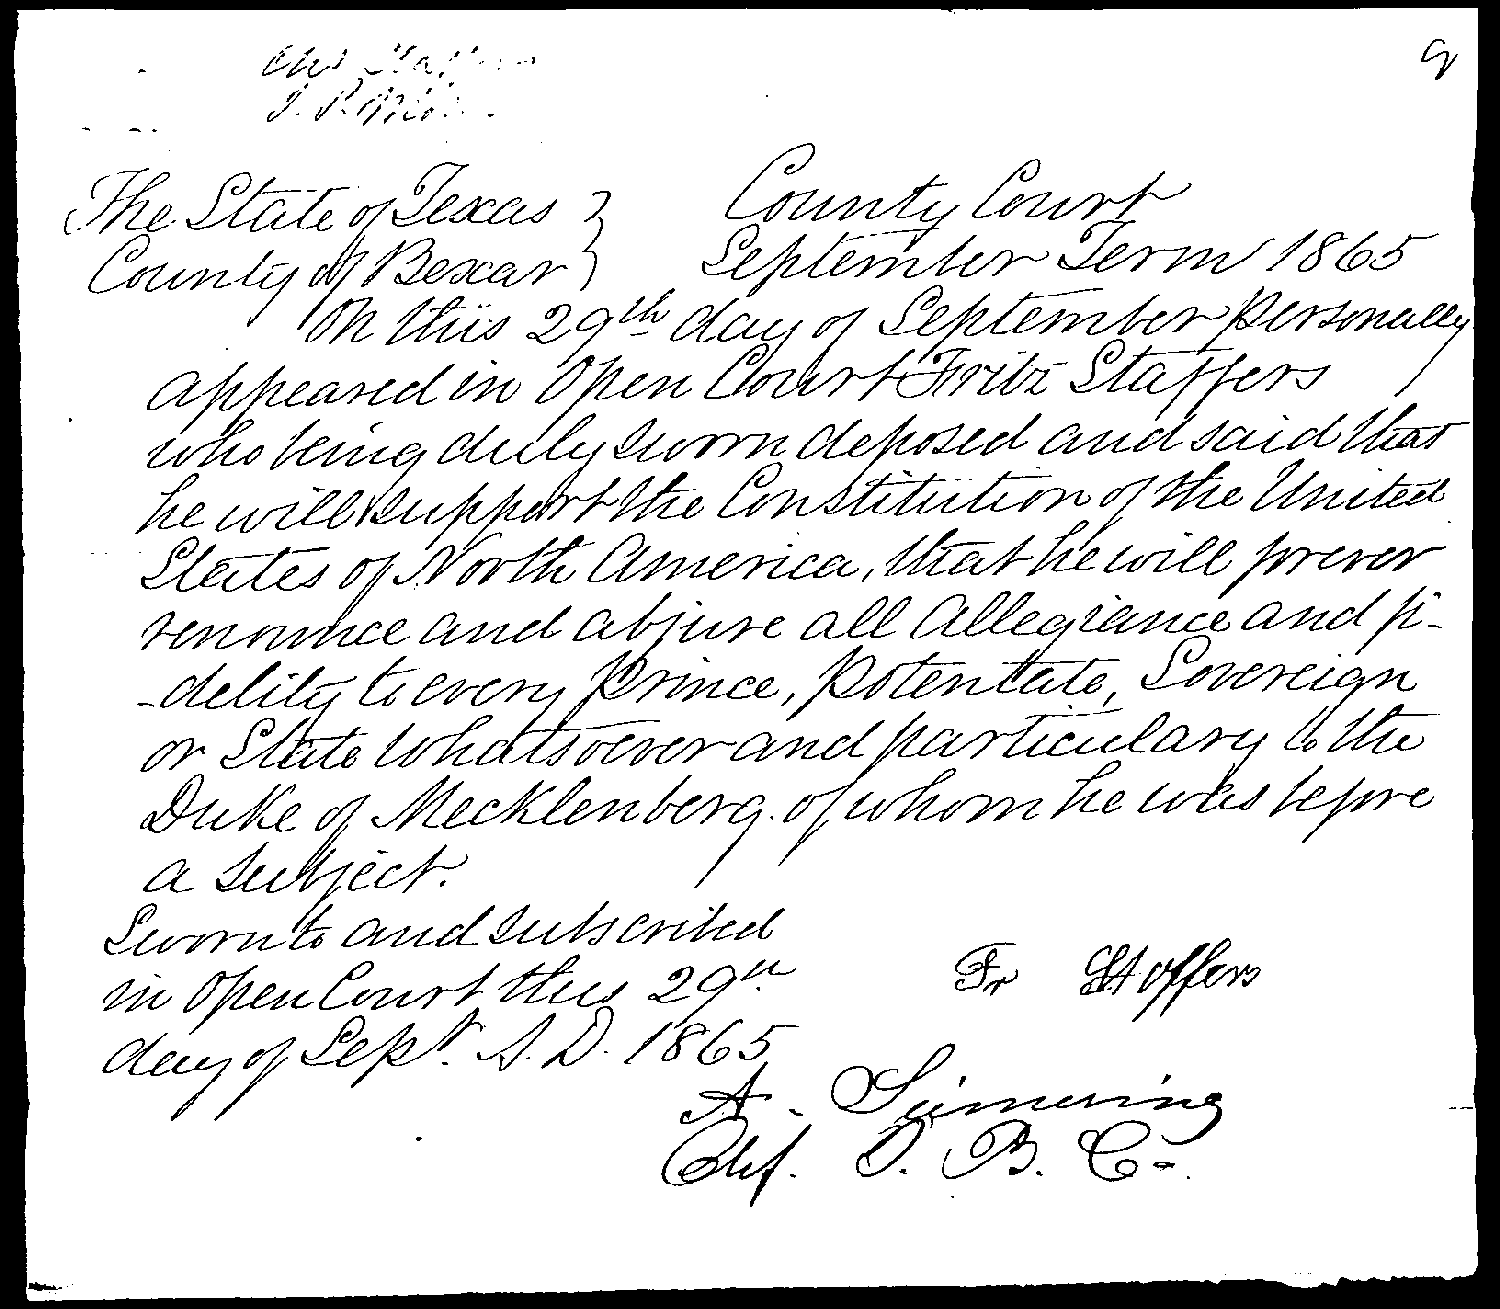 9
The State of Texas } County Court
County of Bexar } September Term 1865
On this 29th day of September personally
appeared in Open Court Fritz Staffers
who being duly sworn deposed and said that
he will support the Constitution of the United
States of North America, that he will forever
renounce and abjure all Allegiance and fi-
-delity to every Prince, Potentate, Sovereign
or State whatsoever and particulary to the
Duke of Mecklenberg of whom he was before
a subject.
Sworn to and subscribed
in Open Court this 29th
day of Sept. A. D. 1865
Fr Stoffers
A. Siemering
Clk. C. B. C.